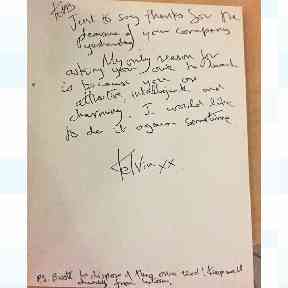 Just to say thanks for the
pleasure of your company
yesterday.
My only reason for
asking you out to lunch
is because you are
attractive, intelligent and
charming. I would like
to do it again sometime
Kelvin xx
PS. Best to dispose of